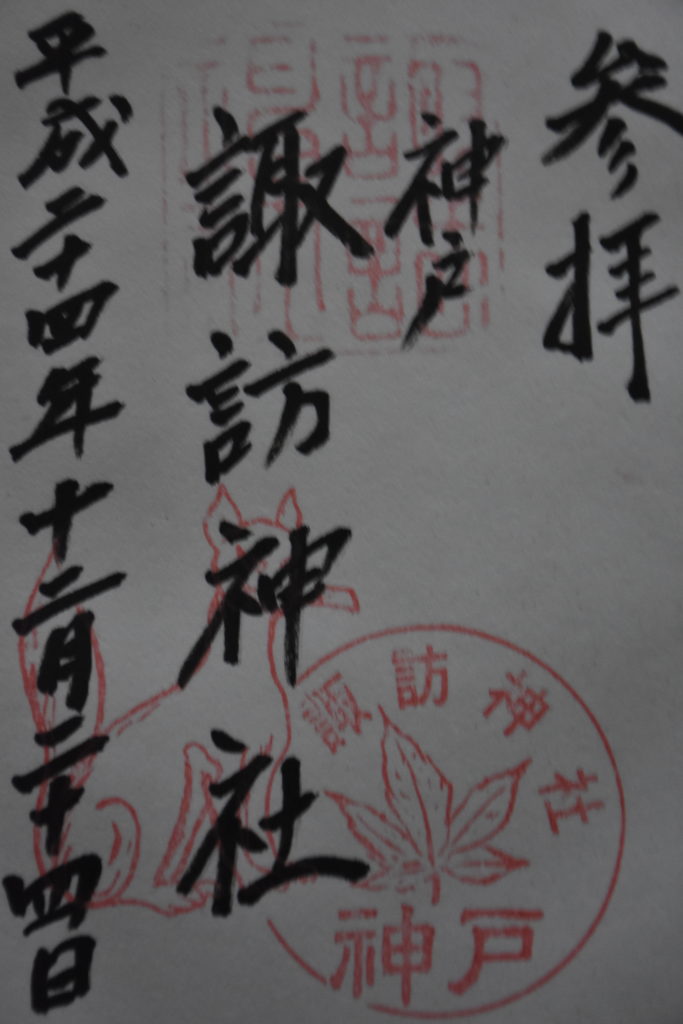 参拝
神戸
諏訪神社
平成二十四年十二月二十四日
諏訪神社
神戸